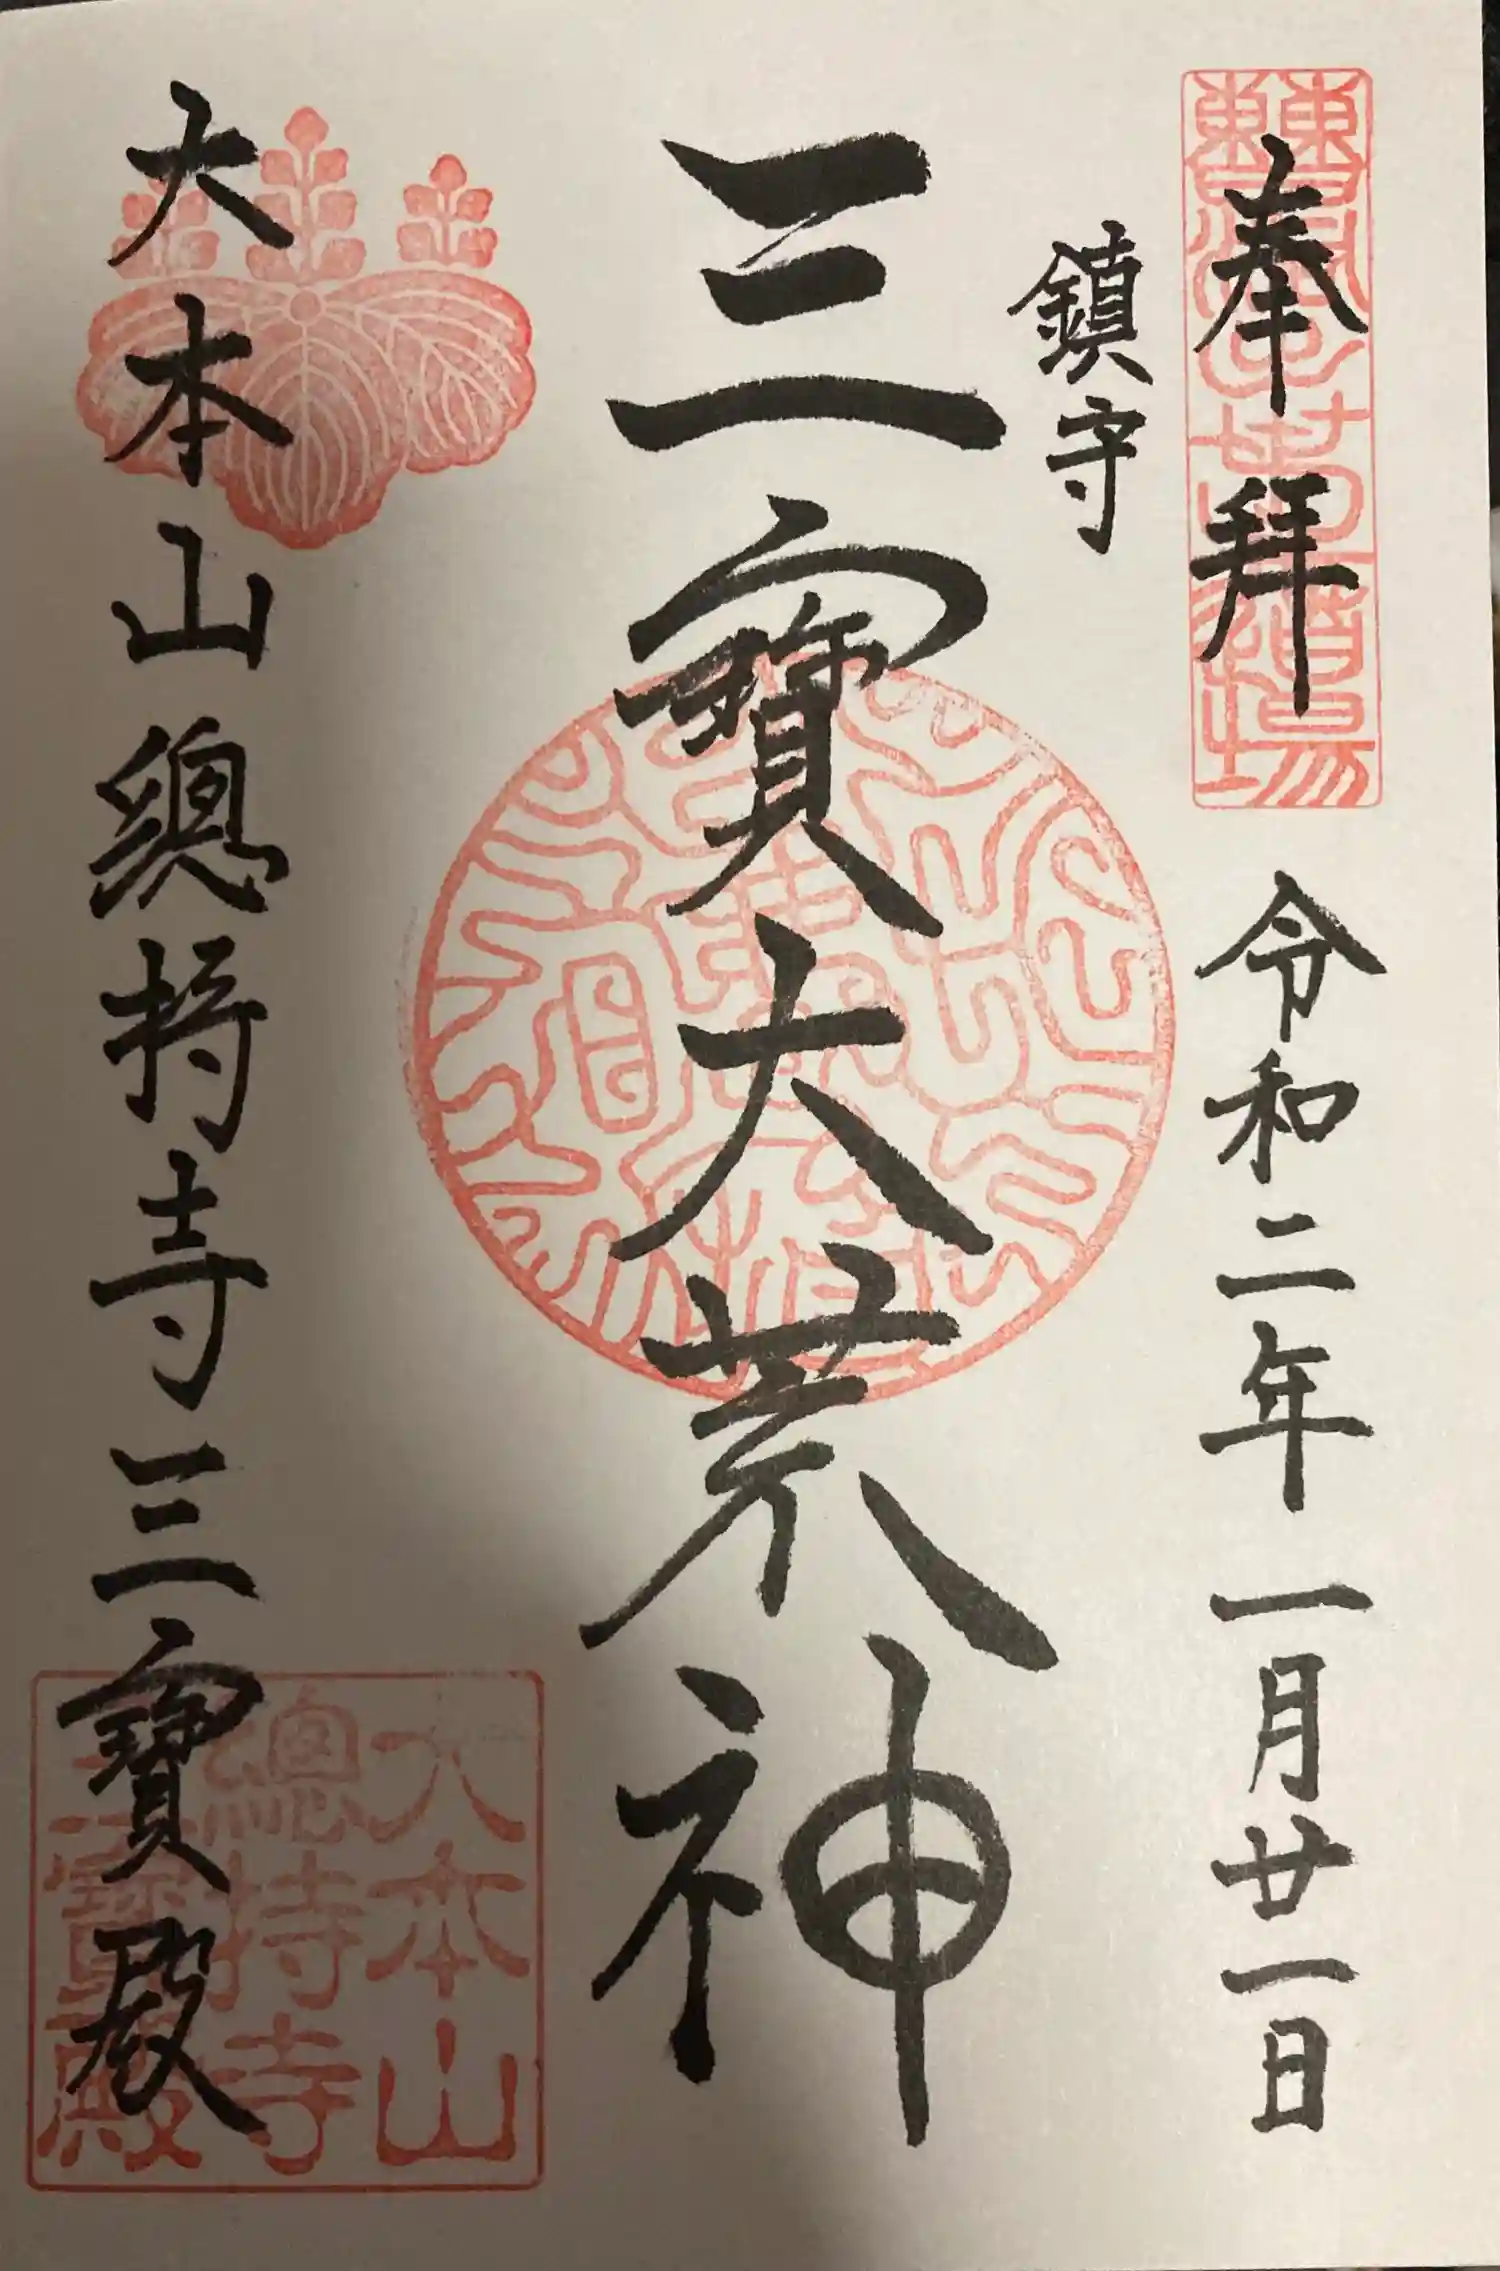 奉拜
令和二年一月廿一日
鎮守
三寶大荒神
大本山總持寺三寶殿
大本山
總持寺
三寶殿